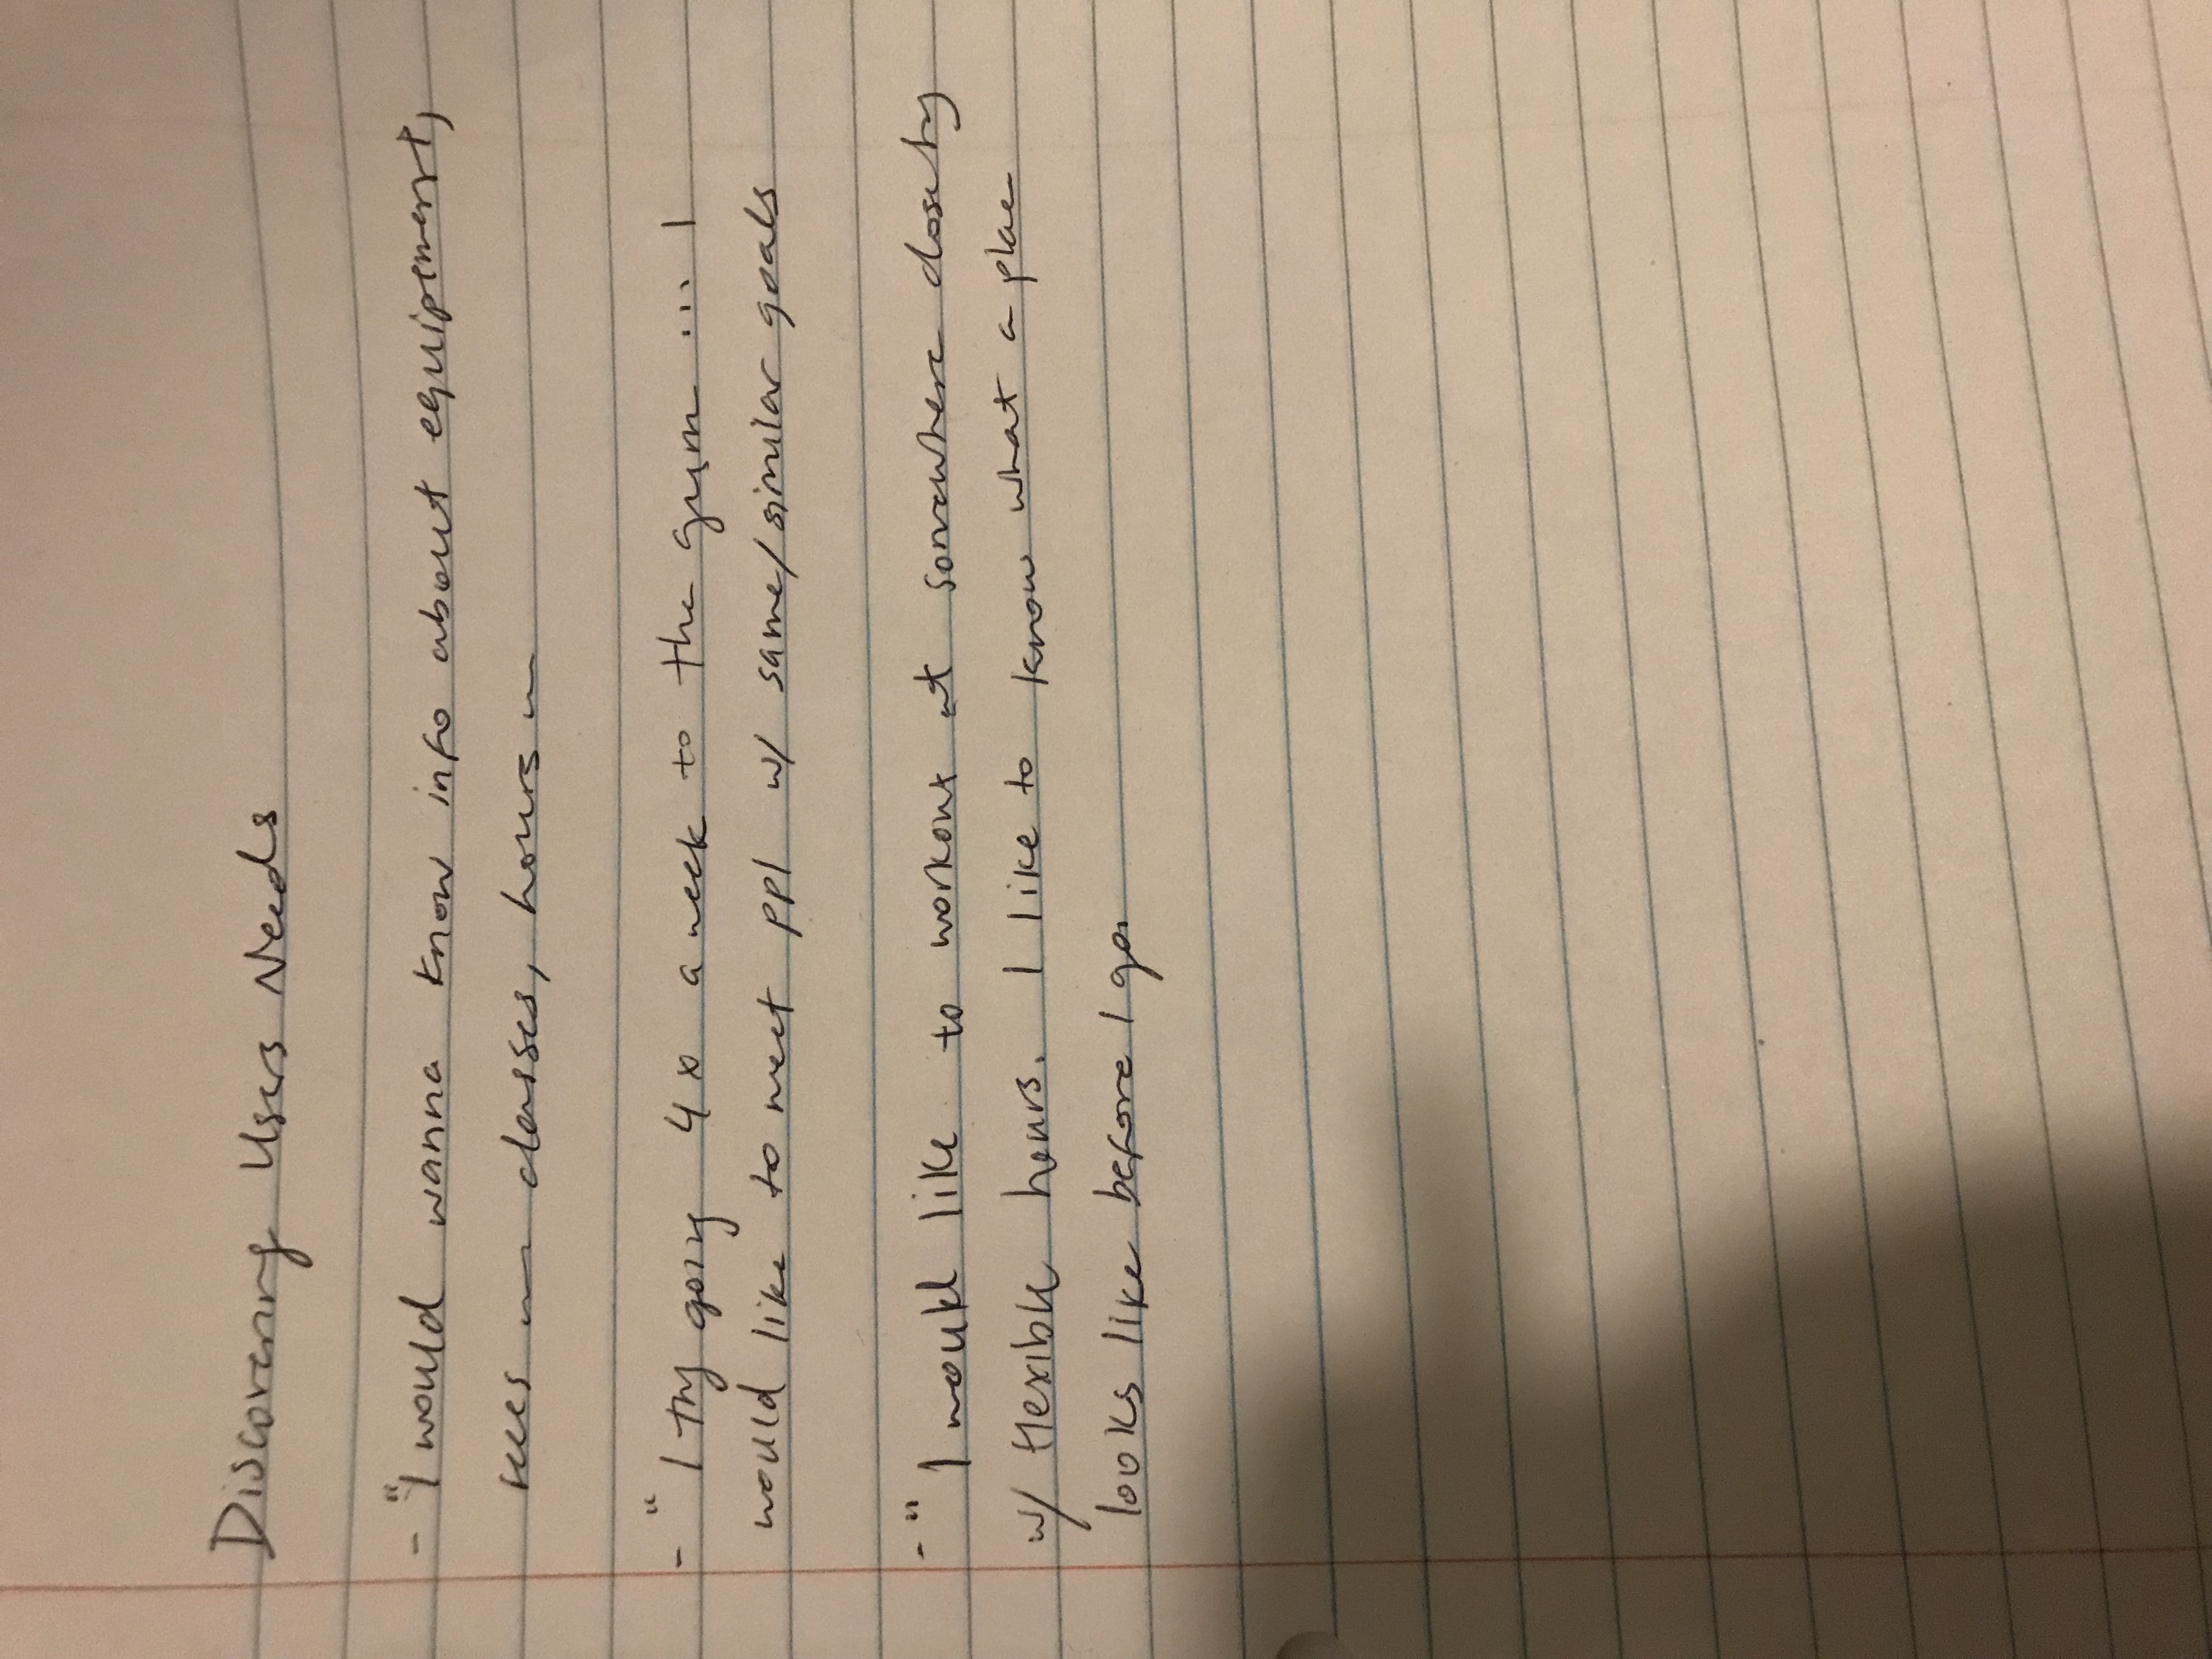 Discovering Users Needs
- "I would wanna know info about equipement,
classes, hours
- " I try going 4x a week to the gym ... I
would like to meet ppl w/ same/similar goals
- " I would like to workout at somewhere closeby
w/ flexible hours. I like to know what a place
looks like before I go.